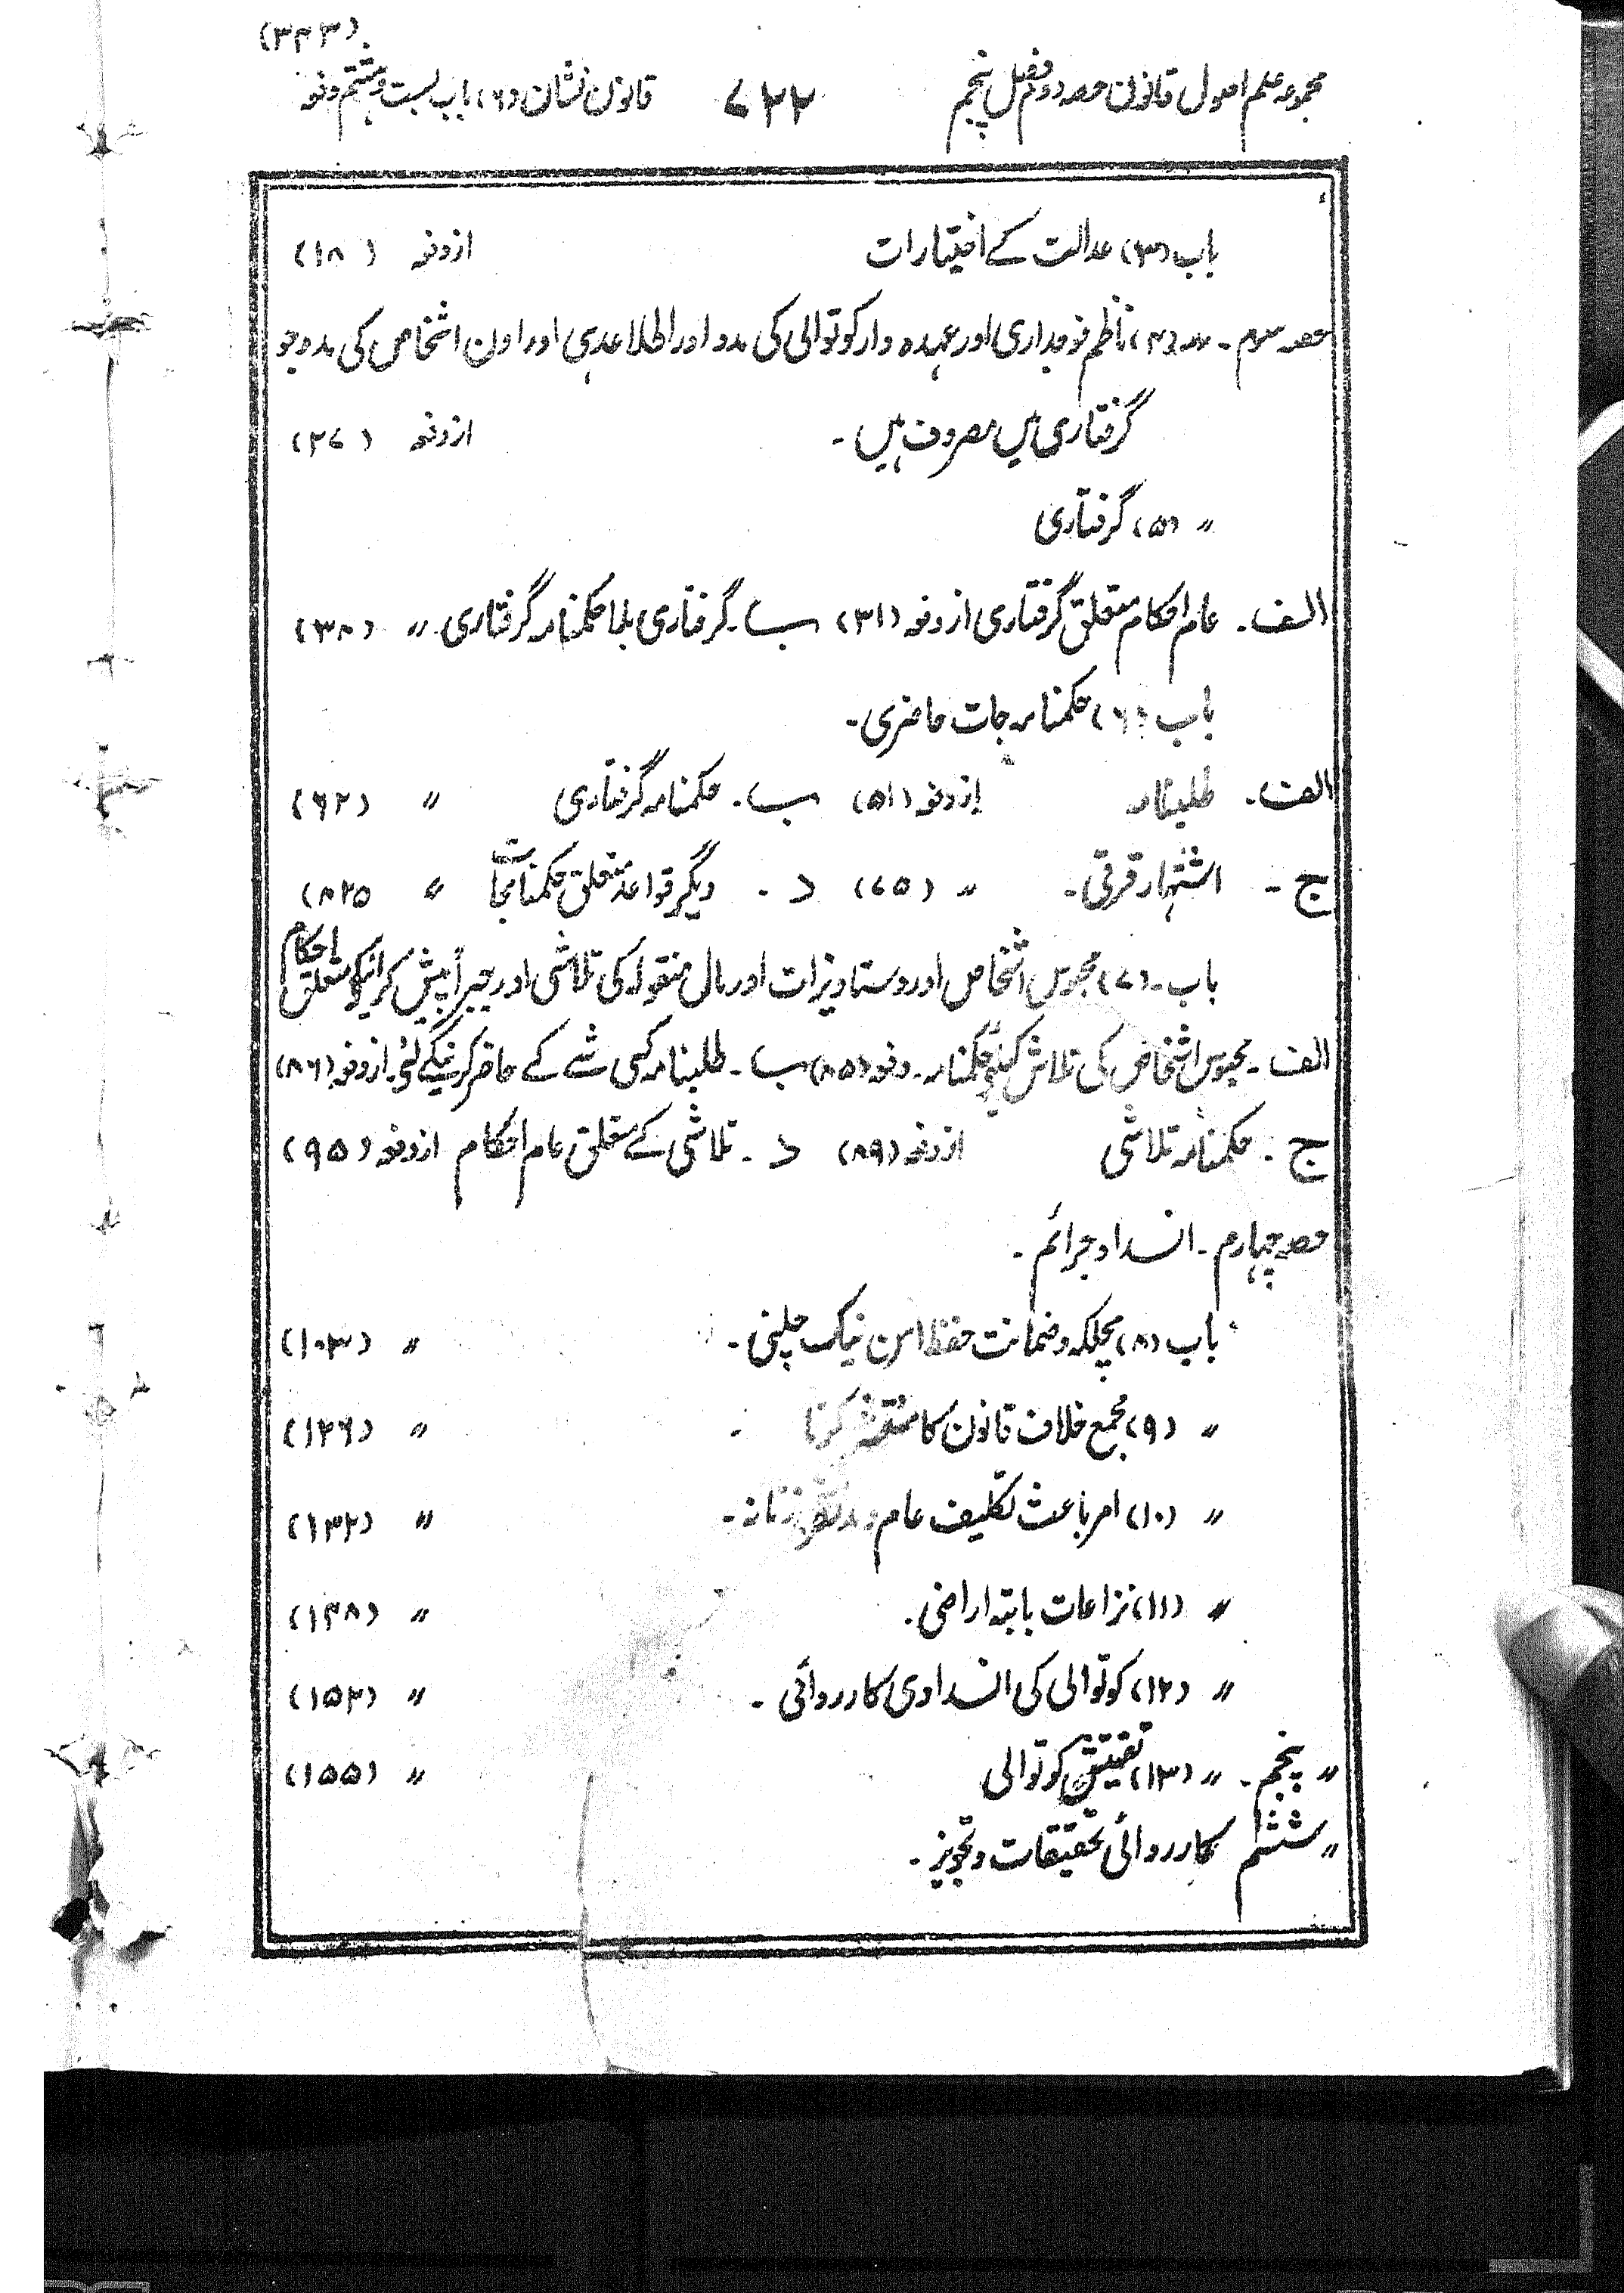 (۳۴۳)
مجموعہ علم اصول قانون حصہ دوم فصل پنجم ۷۲۲ قانون نشان (۶) باب بست وہشتم دفعہ
باب (۳) عدالت کے اختیارات ازدفعہ (۱۸)
حصہ سوم ۔ 〃 (۴) ناظم فوجداری اور عہدہ دار کوتوالی کی مدد اور اطلاعدہی اور اون اشخاص کی مدد جو
گرفتاری میں مصروف ہیں ۔ ازدفعہ (۲۷)
〃 (۵) گرفتاری
الف ۔ عام احکام متعلق گرفتاری ازدفعہ (۳۱) ب ۔ گرفتاری بلا حکمنامہ گرفتاری 〃 (۳۸)
باب (۶) حکمنامہ جات حاضری ۔
الف ۔ طلبنامہ ازدفعہ (۵۱) ب ۔ حکمنامہ گرفتاری 〃 (۶۲)
ج ۔ اشتہار قرقی ۔ 〃 (۷۵) د ۔ دیگر قواعد متعلق حکمنامجات 〃 ۸۲۵)
باب ۔ (۷) محبوس اشخاص اور دستاویزات اور مال منقولہ کی تلاشی اور جبراً پیش کرانیکے متعلق احکام
الف ۔ محبوس اشخاص کی تلاش کیلئے حکمنامہ ۔ دفعہ (۸۵) ب ۔ طلبنامہ کسی شے کے حاضر کرنیکے لئے ۔ ازدفعہ (۸۶)
ج : حکمنامہ تلاشی ازدفعہ (۸۹) د ۔ تلاشی کے متعلق عام احکام ازدفعہ (۹۵)
حصہ چہارم ۔ انسداد جرائم ۔
باب (۸) مچلکہ وضمانت حفظ امن نیک چلنی ۔ 〃 (۱۰۳)
〃 (۹) مجمع خلاف قانون کا منتشر کرنا 〃 (۱۲۶)
〃 (۱۰) امر باعث تکلیف عام و ۔ 〃 (۱۳۲)
〃 (۱۱) نزاعات بابتہ اراضی ۔ 〃 (۱۴۸)
〃 (۱۲) کوتوالی کی انسدادی کارروائی ۔ 〃 (۱۵۲)
〃 پنجم ۔ 〃 (۱۳) تفتیش کوتوالی 〃 (۱۵۵)
〃 ششم کارروائی تحقیقات وتجویز ۔